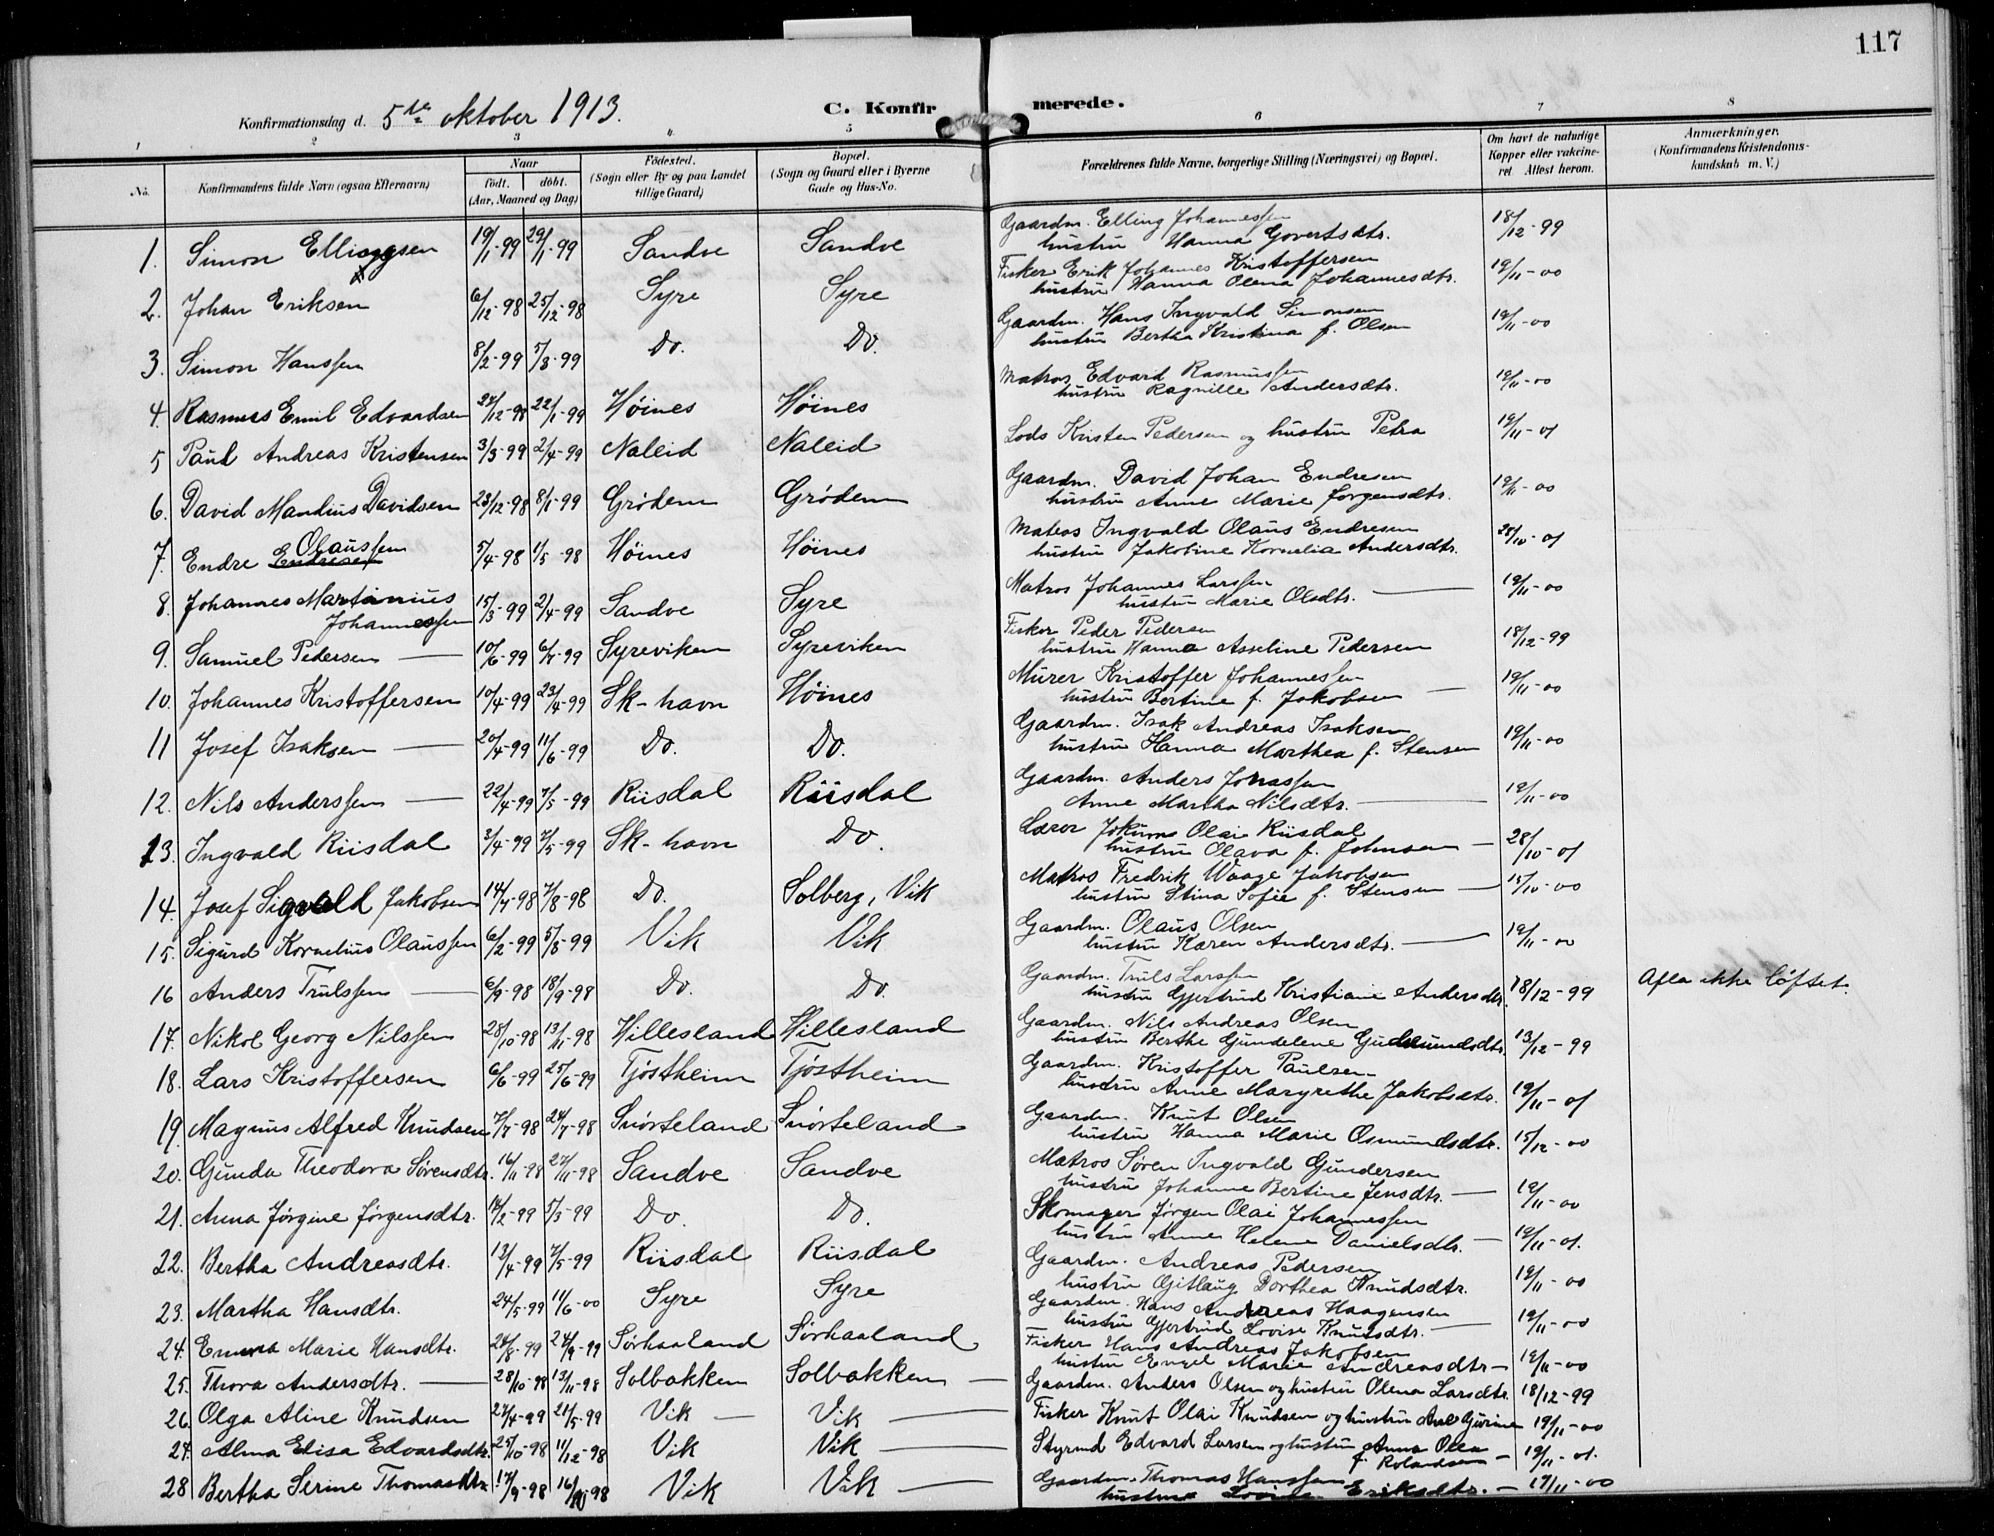 117
Konfirmationsdag d. 5te oktober 1913.
C. Konfirmerede.
1 2 3 4 5 6 7 8
No.
Konfirmandens fulde Navn (ogsaa Efternavn)
Naar
født. døbt.
(Aar, Maaned og Dag)
Fødested.
(Sogn eller By og paa Landet
tillige Gaard)
Bopæl.
(Sogn og Gaard eller i Byerne
Gade og Hus-No.
Forældrenes fulde Navne, borgerlige Stilling (Næringsvei) og Bopæl.
Om havt de naturlige
Kopper eller vakcine-
ret. Attest herom.
Anmærkninger.
(Konfirmandens Kristendoms-
kundskab m. V.)
1. Simon Ellingsen 19/1-99 29/1-99 Sandve Sandve Gaardm. Elling Johannessen 18/12-99
hustru Hanna Govertsdtr.
2. Johan Eriksen 6/12-98 25/12-98 Syre Syre Fisker Erik Johannes Kristoffersen 19/11-00
hustru Hanna Olena Johannesdtr.
3. Simon Hanssen 8/2-99 5/3-99 Do. Do. Gaardm. Hans Ingvald Simonsen 19/11-00
hustru Bertha Kristina f. Olsen
4. Rasmus Emil Edvardsen 27/12-98 22/1-99 Høines Høines Matros Edvard Rasmussen 19/11-00
hustru Ragnille Andersdtr.
5 Paul Andreas Kristensen 3/3-99 2/4-99 Naleid Naleid Lods Kristen Pedersen og hustru Petra 19/11-01
6. David Mandius Davidsen 23/12-98 8/1-99 Grødem Grødem Gaardm. David Johan Endresen 19/11-00
hustru Anne Marie Jørgensdtr.
7. Endre Endresen Olaussen 5/4-98 1/5-98 Høines Høines Matros Ingvald Olaus Endresen 28/10-01
hustru Jakobine Kornelia Andersdtr.
8. Johannes Martinius 15/3-99 2/4-99 Sandve Syre Matros Johannes Larssen 19/11-00
Johannessen hustru Marie Olsdtr.
9. Samuel Pedersen 10/6-99 6/7-99 Syreviken Syreviken Fisker Peder Pedersen 18/12-99
hustru Hanna Asseline Pedersen
10. Johannes Kristoffersen 10/4-99 23/4-99 Sk-havn Høines Murer Kristoffer Johannessen 19/11-00
hustru Bertine f. Jakobsen
11 Josef Isaksen 20/4-99 11/6-99 Do. Do. Gaardm. Isak Andreas Isaksen 19/11-00
hustru Hanna Marthea f. Stensen
12. Nils Anderssen 22/4-99 7/5-99 Riisdal Riisdal Gaardm. Anders Jonassen 19/11-00
Anne Martha Nilsdtr.
13. Ingvald Riisdal 3/4-99 7/5-99 Sk-havn Do. Lærer Jokum Olai Riisdal 28/10-01
hustru Olava f. Johnsen
14. Josef Sigvald Jakobsen 14/7-98 7/8-98 Do. Solberg, Vik Matros Fredrik Waage Jakobsen 15/10-00
hustru Stina Sofie f. Stensen
15. Sigurd Kornelius Olaussen 6/2-99 5/3-99 Vik Vik Gaardm. Olaus Olsen 19/11-00
hustru Karen Andersdtr.
16 Anders Trulssen 6/9-98 18/9-98 Do. Do. Gaardm. Truls Larssen 18/12-99 Afla ikke løftet.
hustru Gjertrud Kristiane Andersdtr.
17. Nikol Georg Nilssen 28/10-98 13/11-98 Hillesland Hillesland Gaardm. Nils Andreas Olsen 13/12-99
hustru Berthe Gundelene Gudmundsdtr.
18. Lars Kristoffersen 6/6-99 25/6-99 Tjøstheim Tjøstheim Gaardm. Kristoffer Paulsen 19/11-01
hustru Anne Margrethe Jakobsdtr.
19. Magnus Alfred Knudsen 7/7-98 24/7-98 Snørteland Snørteland Gaardm. Knut Olsen 15/12-00
hustru Hanna Marie Osmundsdtr.
20. Gunda Theodora Sørensdtr. 16/11-98 27/11-98 Sandve Sandve Matros Søren Ingvald Gundersen 19/11-00
hustru Johanne Bertine Jensdtr.
21. Anna Jørgine Jørgensdtr. 14/2-99 5/3-99 Do. Do. Skomager Jørgen Olai Johannessen 19/11-01.
hustru Anne Helene Danielsdtr.
22. Bertha Andreasdtr. 13/4-99 7/5-99 Riisdal Riisdal Gaardm. Andreas Pedersen 19/11-00
hustru Gitlaug Dorthea Knudsdtr.
23. Martha Hansdtr. 24/5-99 11/6-00 Syre Syre Gaardm. Hans Andreas Haagensen 19/11-00
hustru Gjertrud Lovise Knutsdtr.
24. Emma Marie Hansdtr. 24/8-99 24/9-99 Sørhaaland Sørhaaland Fisker Hans Andreas Jakobsen 19/11-00
hustru Engel Marie Andreasdtr
25. Thora Andersdtr. 28/10-98 13/11-98 Solbakken Solbakken Gaardm. Anders Olsen og hustru Olena Larsdtr. 18/12-99
26. Olga Aline Knudsen 27/4-99 21/5-99 Vik Vik Fisker Knut Olai Knudsen og hustru Ane Gurine 19/11-00
27. Alma Elisa Edvardsdtr. 25/10-98 11/12-98 Vik Vik Styrmd Edvard Larsen og hustru Anna Olea 19/11-01.
f. Rolandsen
28 Bertha Serine Thomasdtr. 17/9-98 16/10-98 Vik Vik Gaardm. Thomas Hanssen 17/11-00
hustru Lovise Eriksdtr.